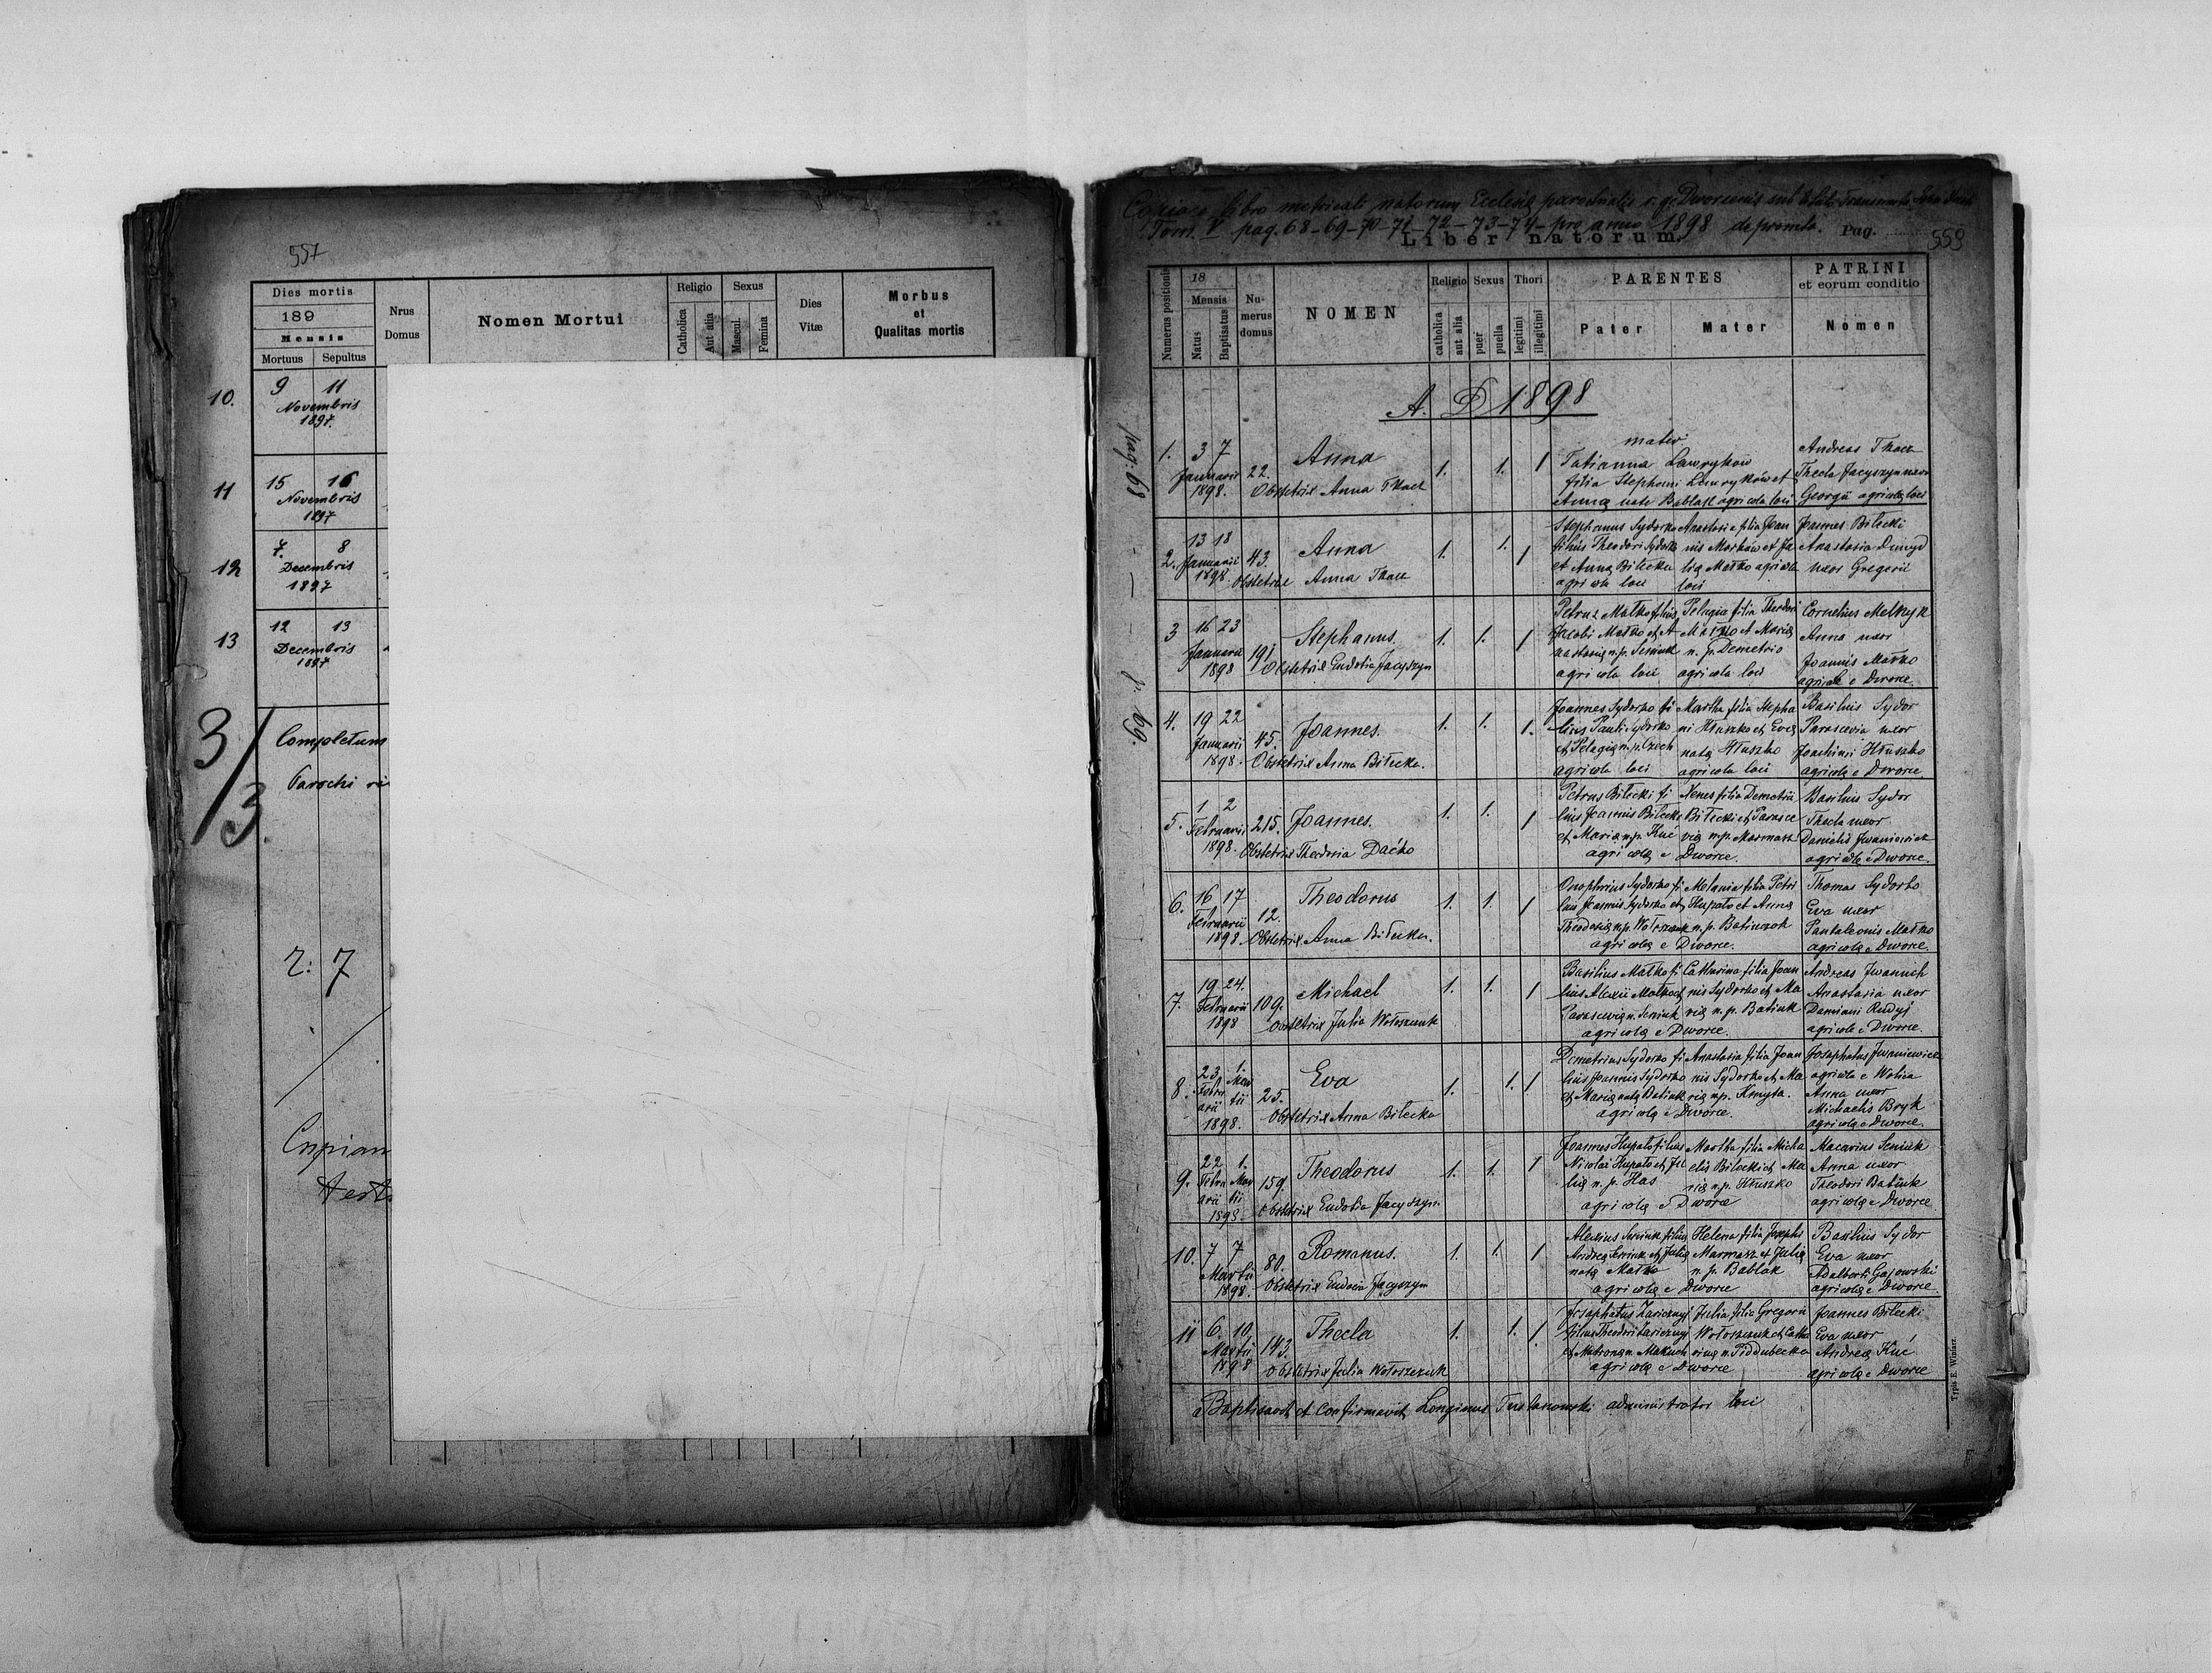 557
Dies mortis
189
Mensis
Mortuus Sepultus
Nrus Domus
Nomen Mortui
Religio
Catholica
Aut alia
Sexus
Mascul.
Femina
Dies Vitæ
Morbus
et
Qualitas mortis
10. 9 11
Novembris
1897.
11 15 16
Novembris
1897
12 7. 8
Decembris
1897
13 12 13
Decembris
1897
3/3.
Completum
Parochi
2: 7
Copia e libro metricali natorum Ecclesiæ parochialis r. g. Dworcensis sub
Tom. V pag. 68-69-70-71-72-73-74- pro anno 1898 deprompta.
Liber natorum.
Pag. 559
Numerus positionis
18
Mensis
Natus
Baptisatus
Numerus domus
NOMEN
Religio
catholica
aut alia
Sexus
puer
puella
Thori
legitimi
illegitimi
PARENTES
Pater
Mater
PATRINI
et eorum conditio
Nomen
A. D 1898
pag: 68
p. 69.
1. 3 7
Januarii
1898. 22. Anna
Obstetrix Anna Tkacz
1. 1. 1
mater
Tatianna Ławryków
filia Stephani Ławryków et
Annæ nate Bablak agricola loci
Andreas Tkacz
Thecla Jacyszyn uxor
Georgii agricolæ loci
2. 13 18
Januarii
1898. 43. Anna
Obstetrix Anna Tkacz
1. 1. 1
Stephanus Sydorko
filius Theodori Sydorko
et Annæ Bilecka
agricola loci
Anastasia filia Joan
nis Morków et Ju
liæ Matko agricola
loci
Joannes Bilecki
Anastasia
uxor Gregorii
3 16 23
Januarii
1898 191 Stephanus.
Obstetrix Eudotia Jacyszyn
1. 1. 1
Petrus Matko filius
Jacobi Matko et A
nastasiæ n.p. Seniuk
agricola loci
Pelagia filia Theodori
Matko et Mariæ
n. p. Demetrio
agricola loci
Cornelius Melnyk
Anna uxor
Joannis Matko
agricolæ e Dworce
4. 19 22
Januarii
1898. 45. Joannes.
Obstetrix Anna Biłecka.
1. 1. 1.
Joannes Sydorko fi
lius Pauli Sydorko
et Pelagiæ n.p. Czech
agricola loci
Martha filia Stepha
ni Hłuszko et Evæ
natæ Hłuszko
agricola loci
Basilius Sydor
Parascevia uxor
Joachimi Hłuszko
agricolæ e Dworce
5. 1 2
Februarii
1898. 215. Joannes.
Obstetrix Theodosia Daćko
1. 1. 1
Petrus Biłecki fi
lius Joannis Bilecki
et Mariæ n.p. Kuć
Xenes filia Demetrii
Biłecki et Parasce
viæ n.p. Marmasz
agricolæ e Dworce.
Basilius Sydor
Thecla uxor
Danielis Jwaniewicz
agricolæ e Dworce.
6. 16 17
Februarii
1898. 12. Theodorus
Obstetrix Anna Biłecka.
1. 1. 1
Onophrius Sydorko fi
lius Joannis Sydorko et
Theodosiæ n.p.
Melania filia Petri
Hupało et Annæ
n. p.
agricolæ e Dworce.
Thomas Sydorko
Eva uxor
Pantaleonis Matko
agricolæ e Dworce.
7. 19 24.
Februarii
1898 109. Michael
Obstetrix Julia Wołoszczuk
1. 1. 1
Basilius Matko fi
lius Alexii Matko et
Parasceviæ n. Seniuk
Catharina filia Joan
nis Sydorko et Ma
riæ n.p. Batiuk
agricolæ e Dworce.
Andreas
Anastasia uxor
Damiani Rudyj
agricolæ e Dworce.
8. 23. 1.
Februarii Martii
1898. 25. Eva
Obstetrix Anna Bilecka
1. 1. 1
Demetrius Sydorko fi
lius Joannis Sydorko
et Mariæ natæ Batiuk
Anastasia filia Joan
nis Sydorko et Ma
riæ n.p. Kmyta.
agricolæ e Dworce.
Josaphatus Jwaniewicz
agricola e Wolica
Anna uxor
Michaelis Bryk
agricolæ e Dworce.
9. 22 1.
Februarii Martii
1898. 159. Theodorus
Obstetrix Eudotia Jacyszyn.
1. 1. 1
Joannes Hupało filius
Nicolai Hupało et Ju
liæ n. p. Has
Martha filia Micha
elis Bilecki et Ma
riæ n.p. Hłuszko
agricolæ e Dworce
Macarius Seniuk
Anna uxor
Theodori Batiuk
agricolæ e Dworce
10. 7 7
Martii
1898. 80. Romanus.
Obstetrix Eudocia Jacyszyn
1. 1. 1
Alexius Seniuk filius
Andreæ Seniuk et Juliæ
natæ Matko
Helena filia Josephi
Marmasz et Juliæ
n. p. Bablak
agricolæ e Dworce
Basilius Sydor
Eva uxor
Adalberti Gajowski
agricolæ e Dworce.
11 6. 10.
Martii
1898 143. Thecla
Obstetrix Julia Wołoszczuk
1. 1. 1
Josaphatus Zaricznyj
filius Theodori Zaricznyj
et Matronæ n. Makuch
Julia filia Gregorii
Wołoszczuk et Catha
rinæ n. Piddubecka
agricolæ e Dworce
Joannes Bilecki
Eva uxor
Andreæ Kuć
agricolæ e Dworce
Baptisavit et Confirmavit Longinus administrator loci
Typis E. Winiarz.